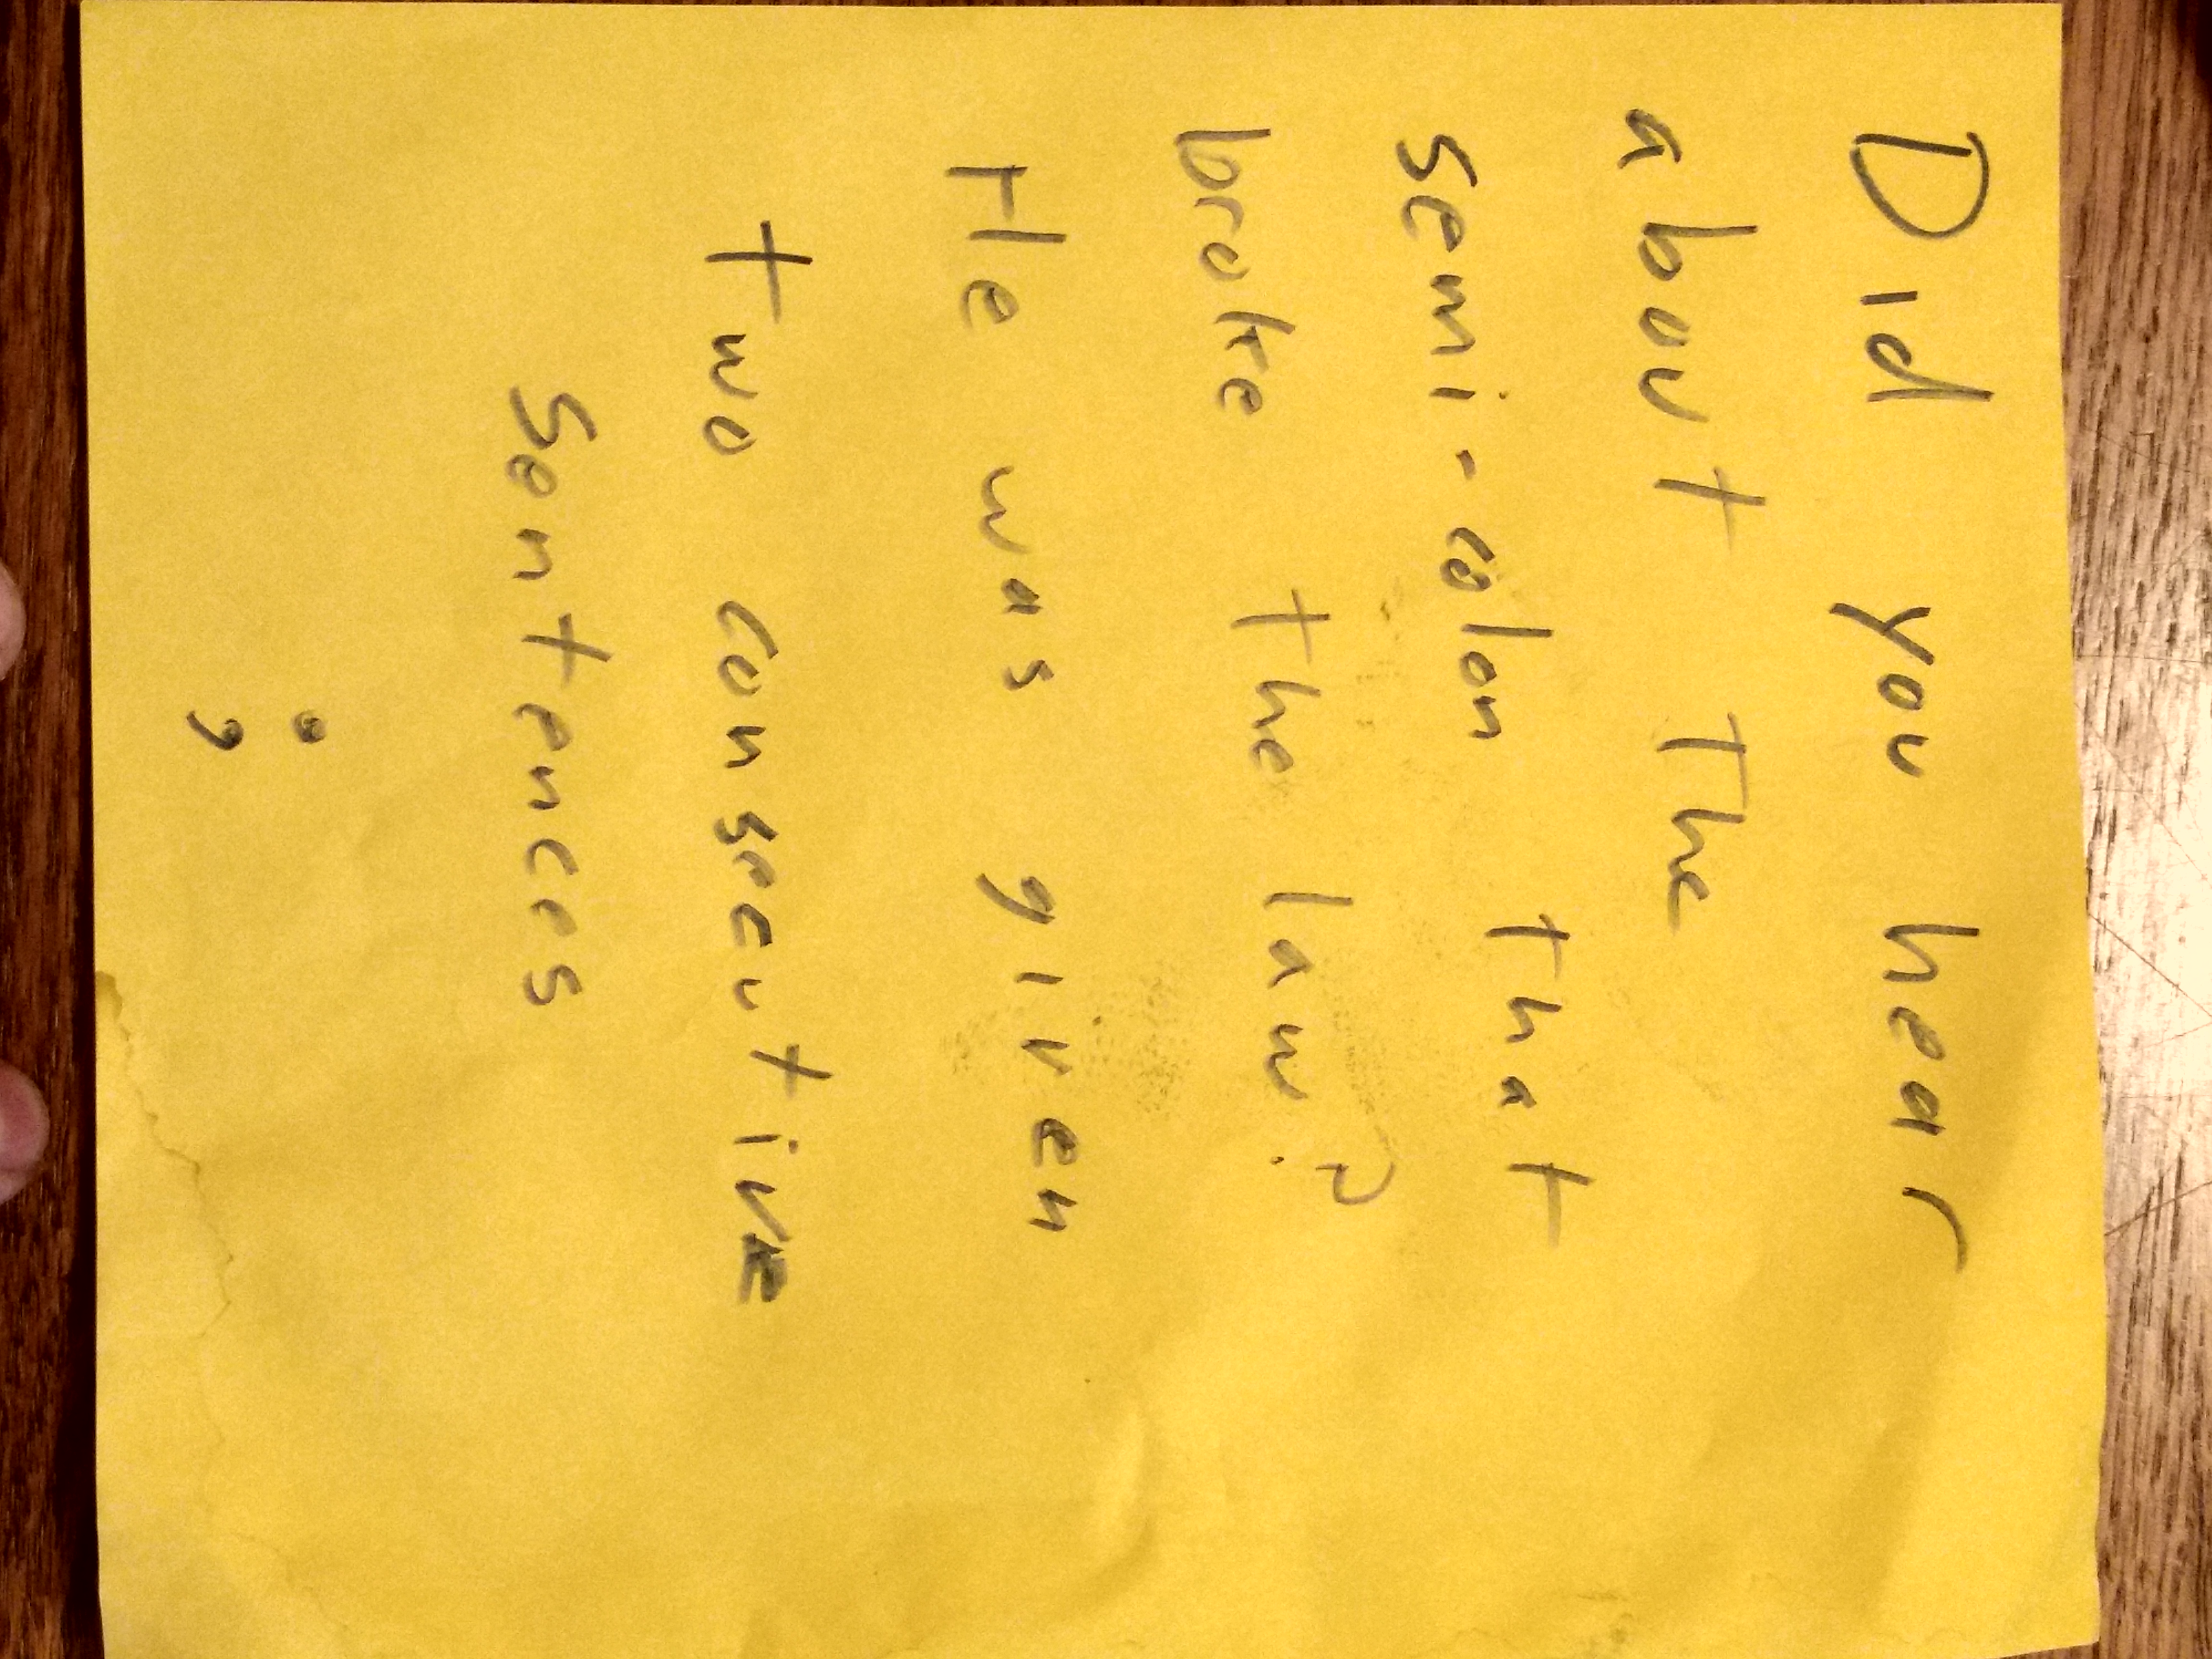 Did you hear
about the
semi-colon that
broke the law?
He was given
two consecutive
sentences
;